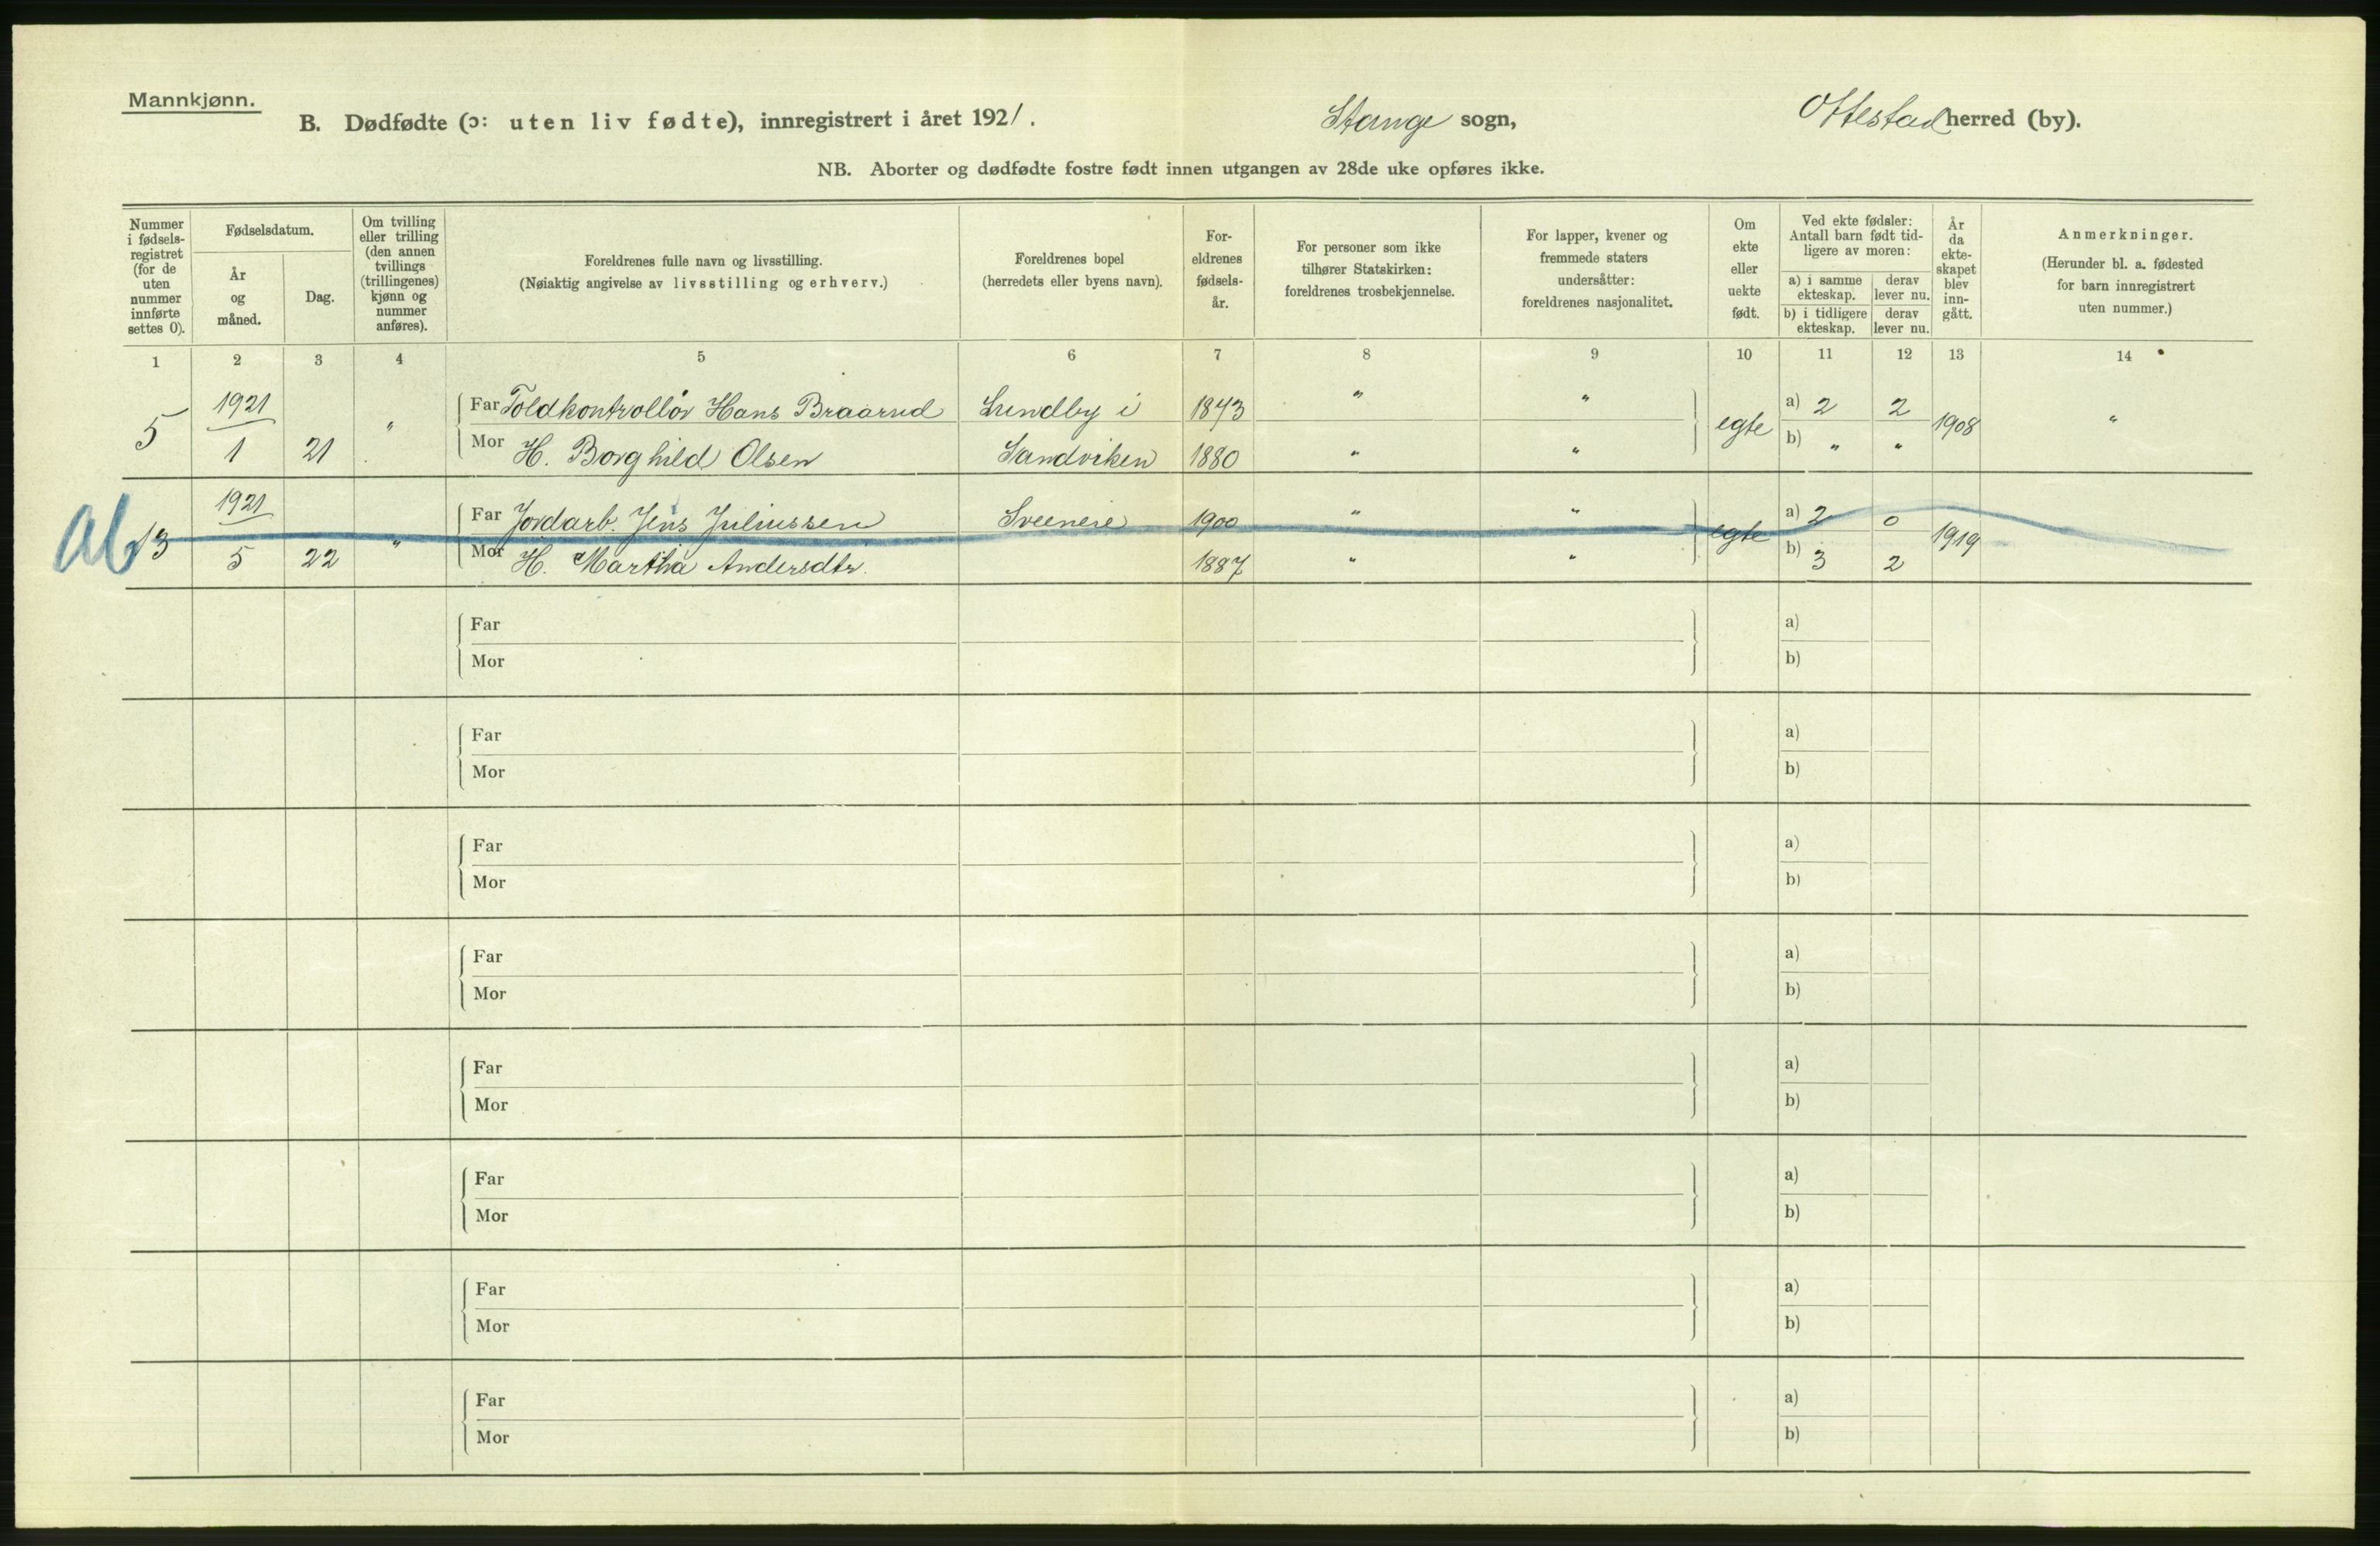 Mannkjønn.
B. Dødfødte (ɔ: uten liv fødte), innregistrert i året 1921. Stange sogn, Ottestad herred (by).
NB. Aborter og dødfødte fostre født innen utgangen av 28de uke opføres ikke.
Nummer i fødsels-registret (for de uten nummer innførte settes 0).
Fødselsdatum.
År og måned.
Dag.
Om tvilling eller trilling (den annen tvillings (trillingenes) kjønn og nummer anføres).
Foreldrenes fulle navn og livsstilling.
(Nøiaktig angivelse av livsstilling og erhverv.)
Foreldrenes bopel
(herredets eller byens navn).
For-eldrenes fødsels-år.
For personer som ikke tilhører Statskirken: foreldrenes trosbekjennelse.
For lapper, kvener og fremmede staters undersåtter: foreldrenes nasjonalitet.
Om ekte eller uekte født.
Ved ekte fødsler: Antall barn født tid-ligere av moren:
a) i samme ekteskap. derav lever nu.
b) i tidligere ekteskap. derav lever nu.
År da ekte-skapet blev inn-gått.
Anmerkninger.
(Herunder bl. a. fødested for barn innregistrert uten nummer.)
1 2 3 4 5 6 7 8 9 10 11 12 13 14
5 1921 " Far Toldkontrollör Hans Braarud Lundby i 1843 " " egte a) 2 2 1908 "
1 21 Mor H. Borghild Olsen Sandviken 1880 " " b) " "
Ab 13 1921 " Far Jordarb. Jens Juliussen 1900 " " egte a) 2 0 1919
5 22 Mor H. Martha Andersdtr. 1887 " " b) 3 2
Far a)
Mor b)
Far a)
Mor b)
Far a)
Mor b)
Far a)
Mor b)
Far a)
Mor b)
Far a)
Mor b)
Far a)
Mor b)
Far a)
Mor b)